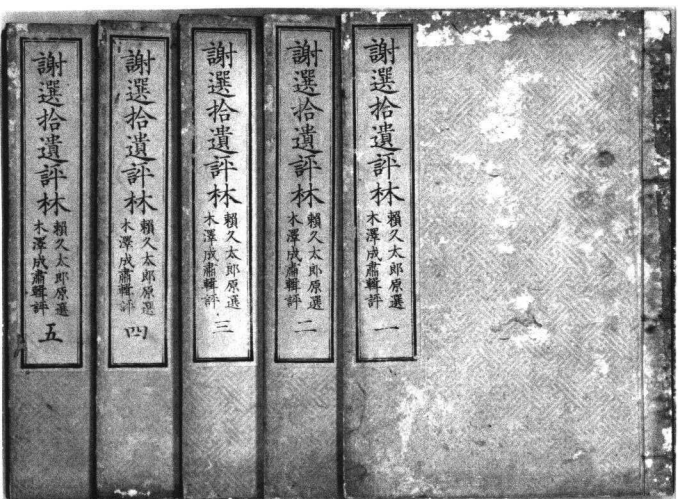 謝選拾遺評林
賴久太郎原選
木澤成肅輯評
一
謝選拾遺評林
賴久太郎原選
木澤成肅輯評
二
謝選拾遺評林
賴久太郎原選
木澤成肅輯評
三
謝選拾遺評林
賴久太郎原選
木澤成肅輯評
四
謝選拾遺評林
賴久太郎原選
木澤成肅輯評
五